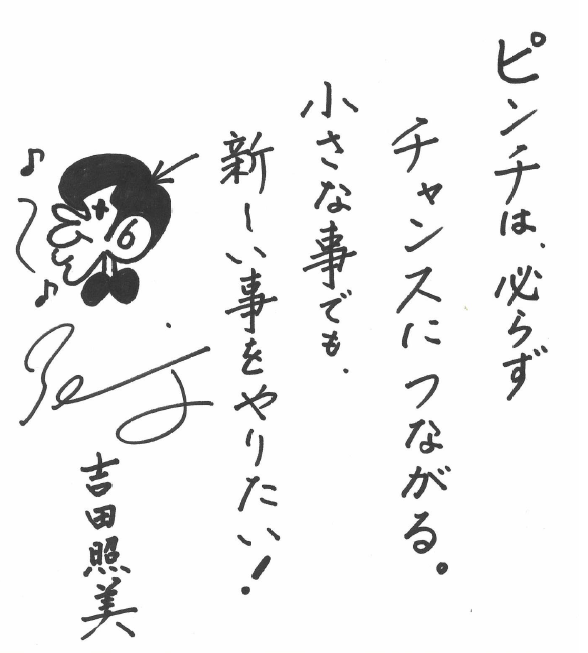 ピンチは、必らず
チャンスにつながる。
小さな事でも、
新しい事をやりたい!
吉田照美